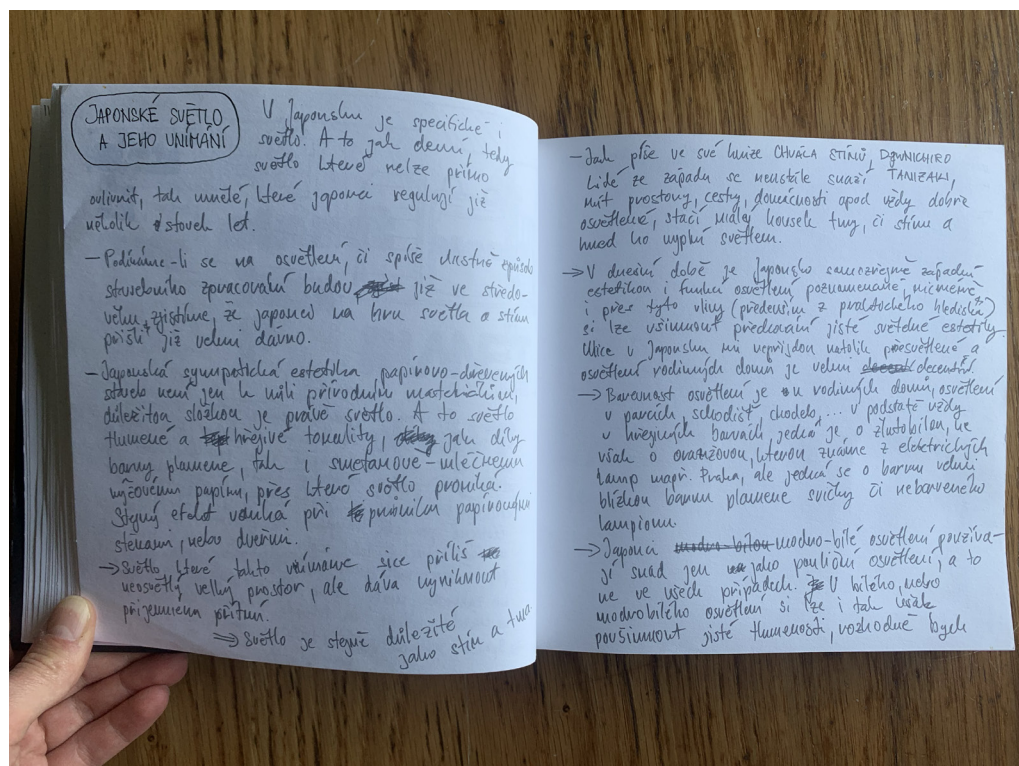 JAPONSKÉ SVĚTLO
A JEHO VNÍMÁNÍ
V Japonsku je specifické i
světlo. A to jak denní, tedy
světlo které nelze přímo
ovlivnit, tak umělé, které japonci regulují již
několik stovek let.
– Podíváme-li se na osvětlení, či spíše vlastně způsob
stavebního zpracování budov již ve středo-
věku, zjistíme, že japonci na hru světla a stínu
přišli již velmi dávno.
– Japonská sympatická estetika papírovo-dřevěných
staveb není jen k mílí přírodním materiálům,
důležitou složkou je právě světlo. A to světlo
tlumené a hřejivé tonality, jak díky
barvy plamene, tak i smetanově-mléčnému
rýžovému papíru, přes které světlo proniká.
Stejný efekt vzniká při průniku papírovými
stěnami, nebo dveřmi.
→ Světlo které takto vnímáme sice příliš
neosvětlý velký prostor, ale dává vyniknout
příjemnému přítmí.
⇒ Světlo je stejně důležité
jako stín a tma
– Jak píše ve své knize CHVÁLA STÍNŮ,
TANIZAKI,
Lidé ze západu se neustále snaží
mít prostory, cesty, domácnosti apod vždy dobře
osvětlené, stačí malý kousek tmy, či stínu a
hned ho vyplní světlem.
→ V dnešní době je Japonsko samozřejmě západní
estetikou i funkcí osvětlení poznamenané, nicméně
i přes tyto vlivy (především z praktického hlediska)
si lze všimnout předcházení jisté světelné estetiky.
Ulice v Japonsku mi nepřijdou natolik přesvětlené a
osvětlení rodinných domů je velmi decentní.
→ Barevnost osvětlení je u rodinných domů, osvětlení
v parcích, schodišť, chodeb, ... v podstatě vždy
v hřejivých barvách, jedná je o žlutobílou, ne
však o oranžovou, kterou známe z elektrických
lamp např. Praha, ale jedná se o barvu velmi
blízkou barvu plamene svíčky či nebarveného
lampionu.
→ Japonci modro-bílou modro-bílé osvětlení používa-
jí snad jen jako pouliční osvětlení, a to
ne ve všech případech. U bílého, nebo
modrobílého osvětlení si lze i tak však
povšimnout jisté tlumenosti, rozhodně bych